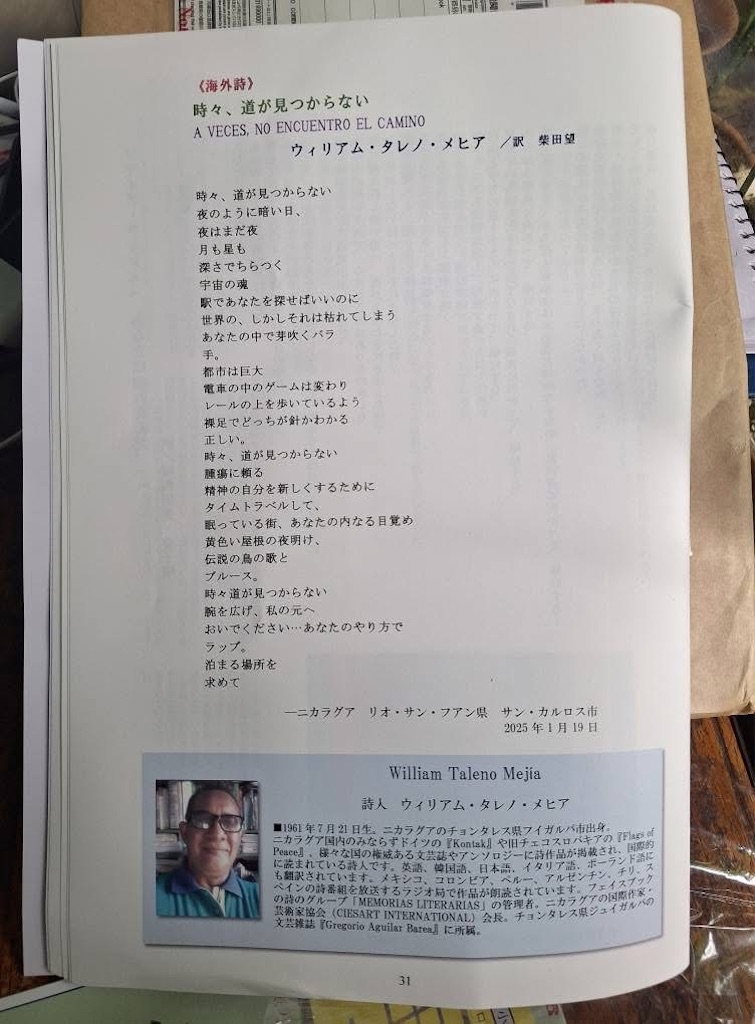 《海外詩》
時々、道が見つからない
A VECES, NO ENCUENTRO EL CAMINO
ウィリアム・タレノ・メヒア ／訳 柴田望
時々、道が見つからない
夜のように暗い日、
夜はまだ夜
月も星も
深さでちらつく
宇宙の魂
駅であなたを探せばいいのに
世界の、しかしそれは枯れてしまう
あなたの中で芽吹くバラ
手。
都市は巨大
電車の中のゲームは変わり
レールの上を歩いているよう
裸足でどっちが針かわかる
正しい。
時々、道が見つからない
腫瘍に頼る
精神の自分を新しくするために
タイムトラベルして、
眠っている街、あなたの内なる目覚め
黄色い屋根の夜明け、
伝説の鳥の歌と
ブルース。
時々道が見つからない
腕を広げ、私の元へ
おいでください…あなたのやり方で
ラップ。
泊まる場所を
求めて
―ニカラグア リオ・サン・フアン県 サン・カルロス市
2025年1月19日
William Taleno Mejía
詩人 ウィリアム・タレノ・メヒア
■1961年7月21日生。ニカラグアのチョンタレス県フイガルパ市出身。
ニカラグア国内のみならずドイツの『Kontak』や旧チェコスロバキアの『Flags of
Peace』、様々な国の権威ある文芸誌やアンソロジーに詩作品が掲載され、国際的
に読まれている詩人です。英語、韓国語、日本語、イタリア語、ポーランド語に
も翻訳されています。メキシコ、コロンビア、ペルー、アルゼンチン、チリ、ス
ペインの詩番組を放送するラジオ局で作品が朗読されています。フェイスブック
の詩のグループ「MEMORIAS LITERARIAS」の管理者。ニカラグアの国際作家・
芸術家協会（CIESART INTERNATIONAL）会長。チョンタレス県ジュイガルパの
文芸雑誌『Gregorio Aguilar Barea』に所属。
31